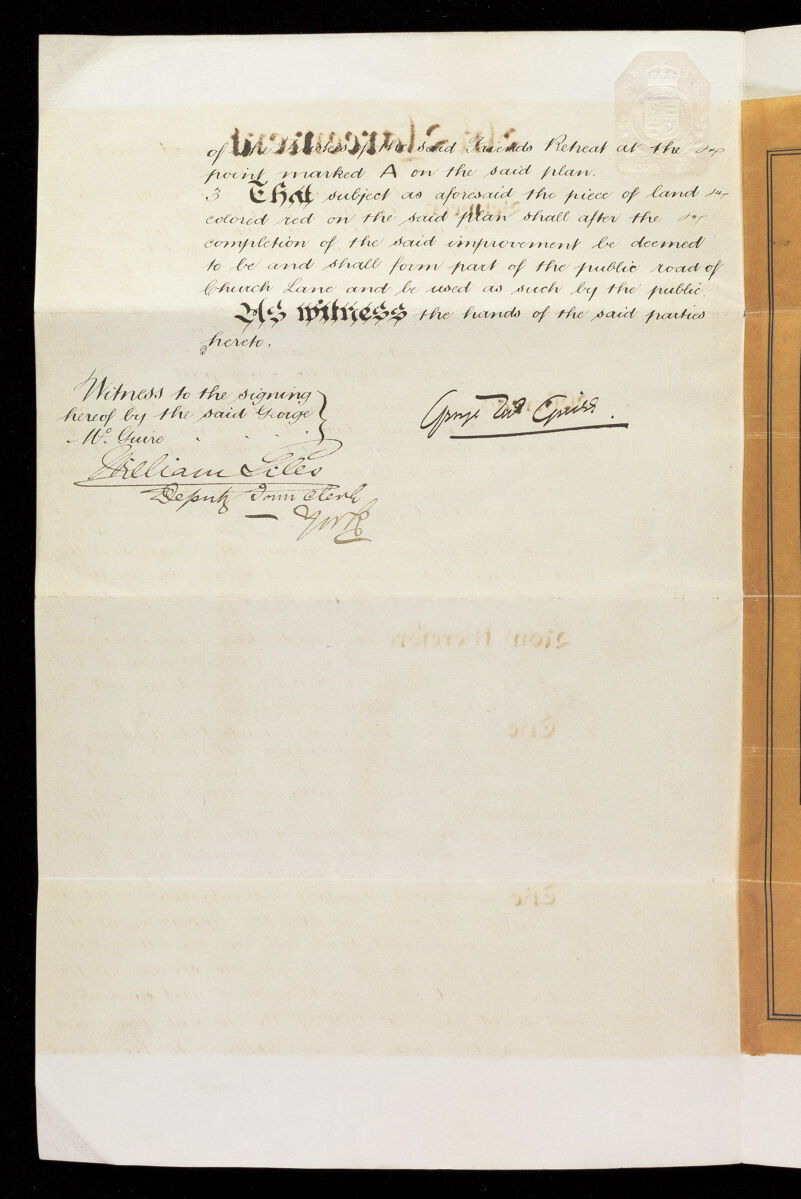 of the Trustees of the said Friends Retreat at the
point marked A on the said plan.
3 That subject as aforesaid the piece of land
colored red on the said plan shall after the
completion of the said improvement be deemed
to be and shall form part of the public road of
Church Lane and be used as such by the public.
As witness the hands of the said parties
hereto.
Witness to the signing
hereof by the said George
Mc. Guire
George
William Giles
Deputy Town Clerk
York